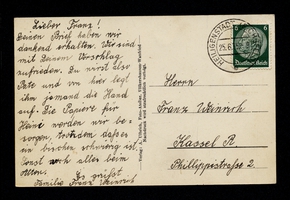 Lieber Franz!
Deinen Brief haben wir
dankend erhalten. Wir sind
mit Deinem Vorschlag
zufrieden. Du wirst also
Pate und von hier legt
ihm jemand die Hand
auf. Die Papiere für
Heinz werden wir be-
sorgen, trotzdem daß es
ein bischen schwierig ist.
Sonst noch alles beim
Alten.
Es grüßt
Familie Franz Weinrich
HEILIGENSTADT
6
Deutsches Reich
Herrn
Franz Weinrich
Kassel R
Philippistraße 2.